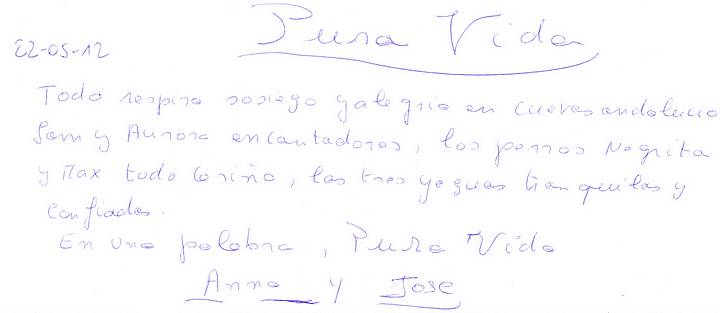 Pura Vida
22-05-12
Todo respira sosiego y alegria en cuevas andalucia
Sam y Aurora encantadores, los perros Negrita
y Max todo cariño, las tres yeguas tranquilas y
confiadas.
En una palabra, Pura Vida
Anna y Jose